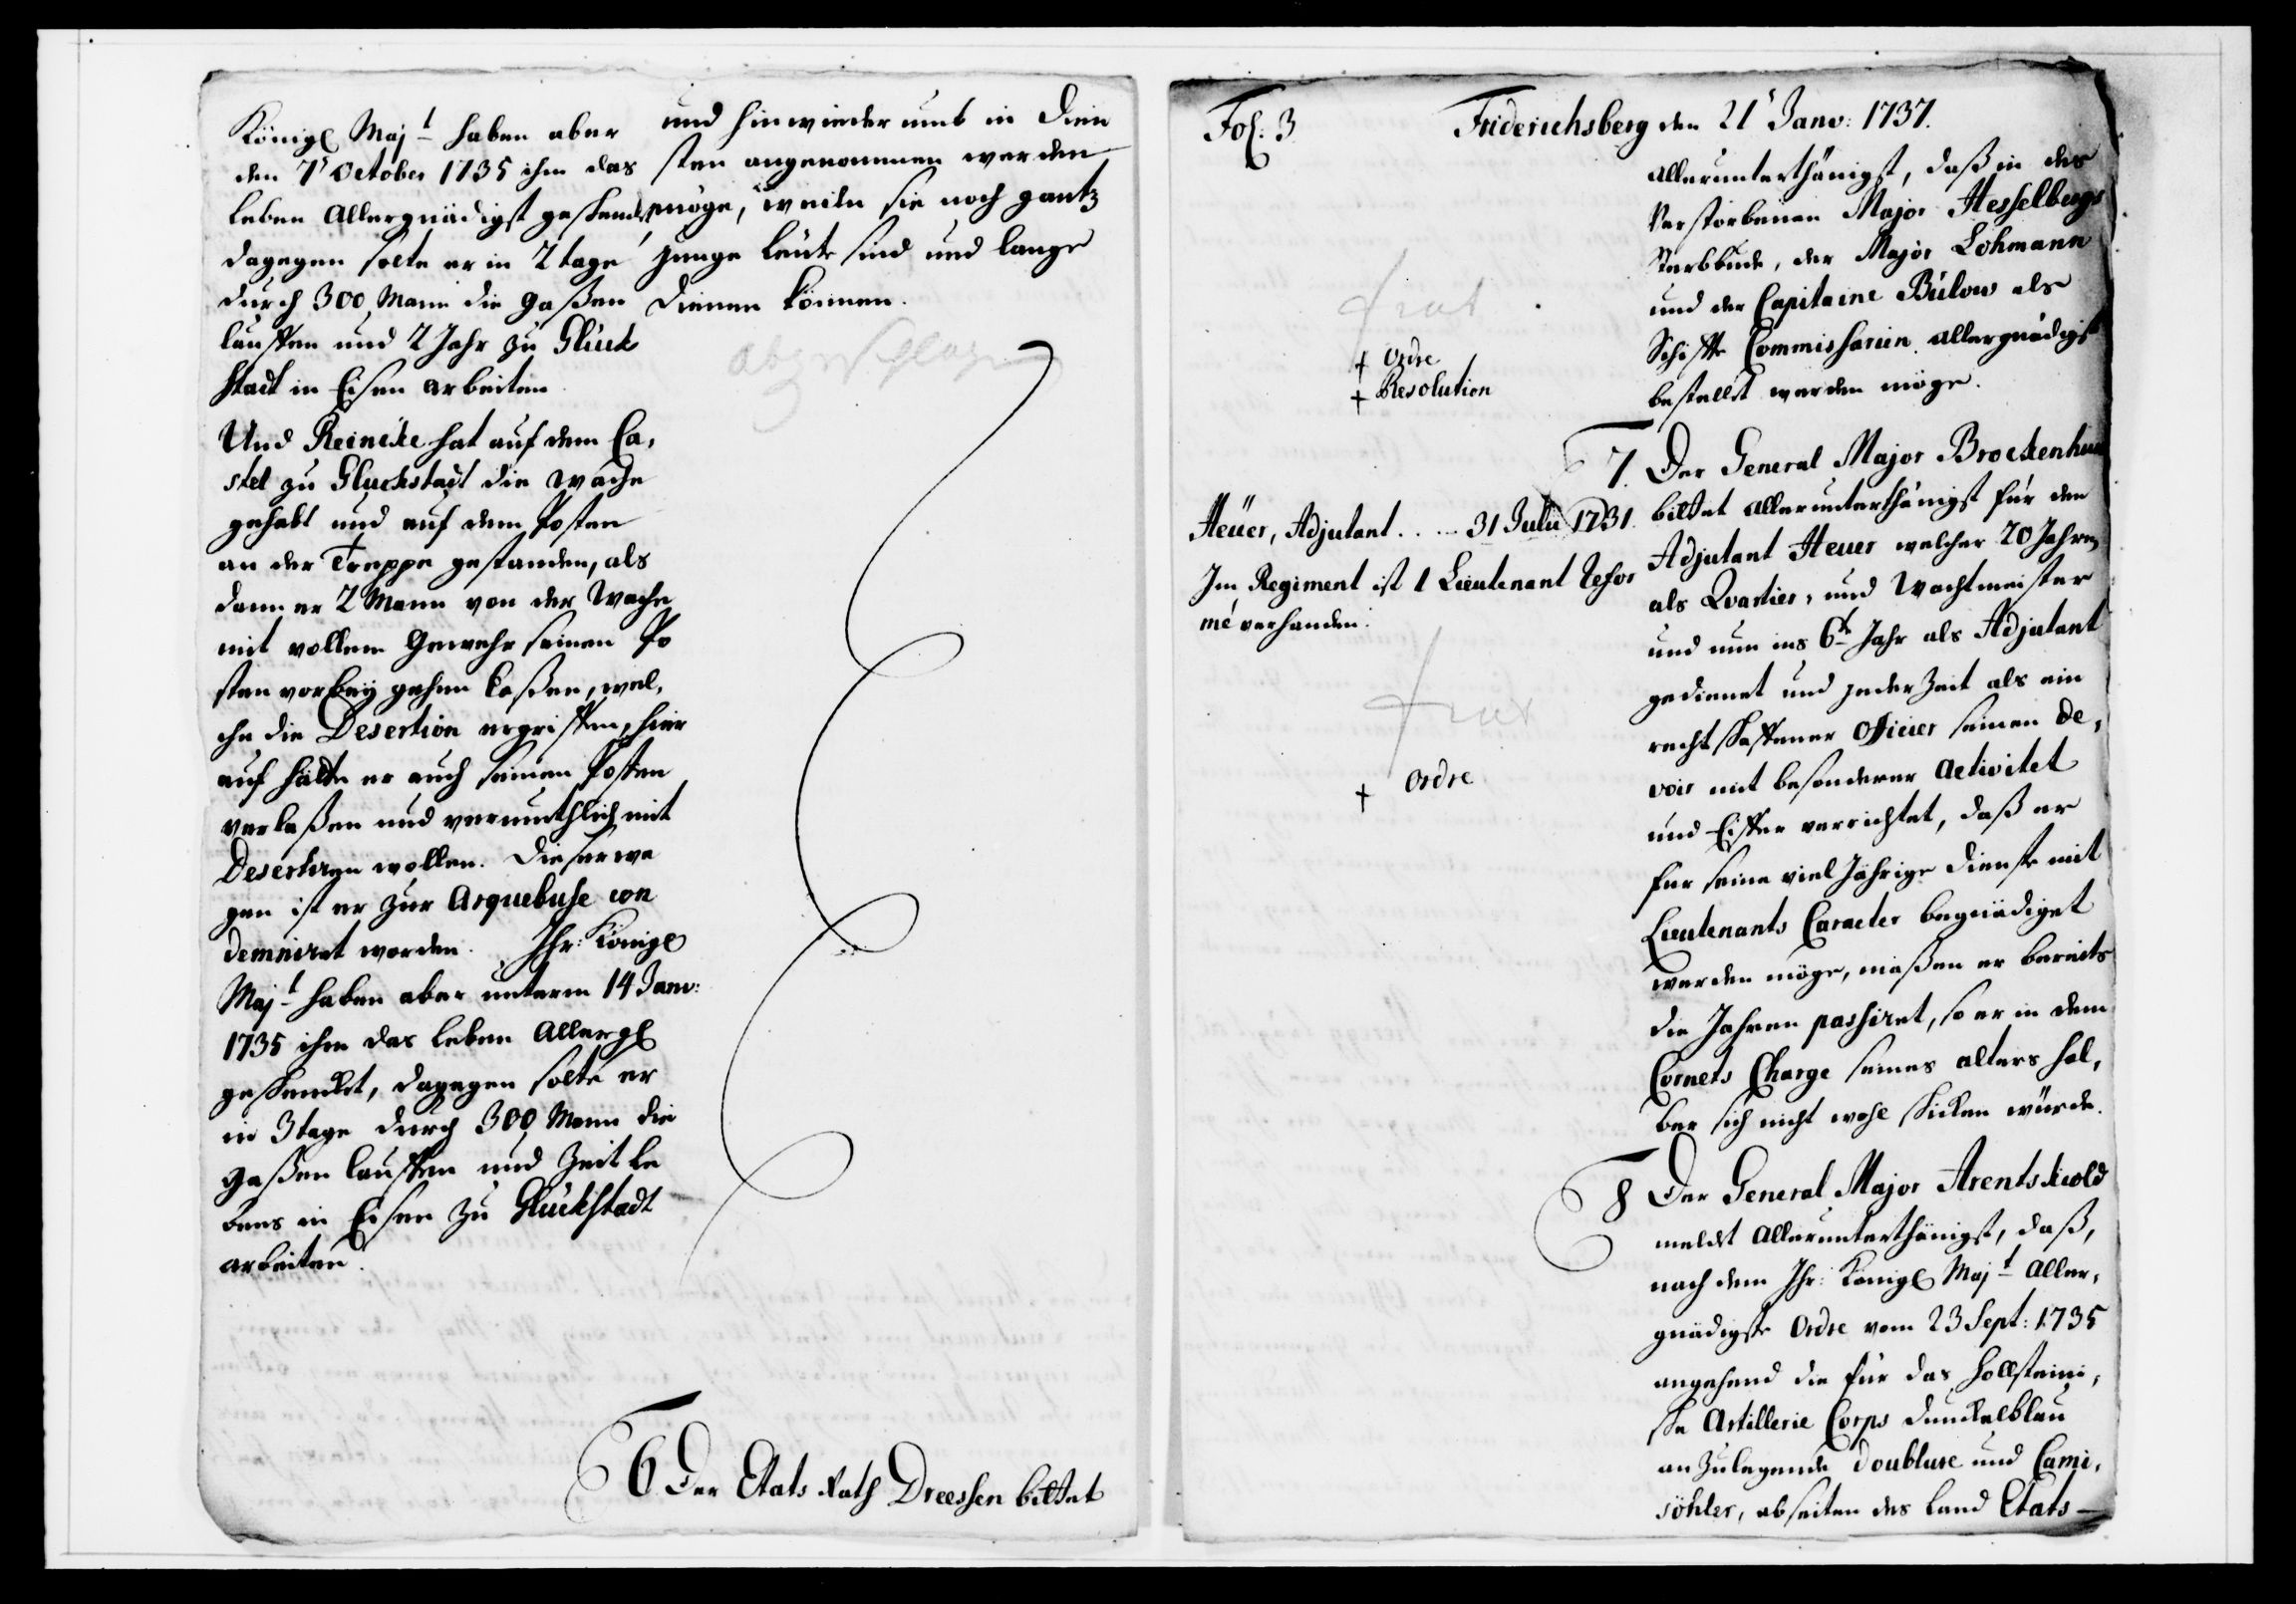 Königl Majt haben aber
den 7t October 1735 ihm das
leben Allergnädigst geschenckt,
dagegen solte er in 2 tage
durch 300 Mann die gaßen
lauffen und 2 Jahr zu Glück
stadt in Eisen arbeiten.
Und Reincke hat auf dem Ca,
stel zu Gluckstadt die Wache
gehabt und auf dem Posten
an der Treppe gestanden, als
dann er 2 Mann von der Wache
mit vollem Gewehr seinen Po
sten vorbey gehen laßen, wel,
che die Desertion ergriffen, hier
auf hätte er auch seinen Posten
verlaßen und vermuthlich mit
Desertiren wollen. Dieserwe
gen ist er zur Arquebuse con
demniret worden. Ihr: Königl
Majt haben aber unterm 14 Janv:
1735 ihm das leben Allergl
geschenckt, dagegen solte er
in 3 tage durch 300 Mann die
gaßen lauffen und Zeit le
bens in Eisen zu Glückstadt
arbeiten.
und hinwiederumb in Dien
sten angenommen werden
möge, weiln sie noch gantz
junge leute sind und lange
dienen können.
abgeschlagen
6 Der Etats Rath Dreessen bittet
Fol: 3
Friderichsberg den 21t Janv: 1737.
allerunterthänigst, daß in des
Verstorbenen Major Hesselbergs
Sterbbude, der Major Lohmann
und der Capitaine Bülow als
Schifts Commissarien allergnädigst
bestellt werden möge.
fiat
† Ordre
† Resolution
7. Der General Major Brockenhuus
bittet allerunterthänigst für den
Adjutant Heuer welcher 20 Jahren
als Qvartier, und Wachtmeister
und nun ins 6te Jahr als Adjutant
gedienet und jeder Zeit als ein
rechtschaffener Officier seinen de,
voir mit besonderer Activitet
und Eiffer verrichtet, daß er
für seine viel Jährige Dienste mit
Lieutenants Caracter begnädiget
werden möge, maßen er bereits
die Jahren passiret, so er in dem
Cornets Charge seines alters hal,
ber sich nicht wohl schicken würde.
Heüer, Adjutant . . . . 31 Julii 1731.
Im Regiment ist 1 Lieutenant Refor
mé verhanden.
fiat
† Ordre
8 Der General Major Arentskiold
meldet Allerunterthänigst, daß,
nach dem Ihr: Königl Majt Aller,
gnädigste Ordre vom 23 Sept: 1735
angehend die für das Hollsteini,
sche Artillerie Corps dunckelblau
anzulegende Doublure und Cami,
söhler, abseiten des Land Etats—